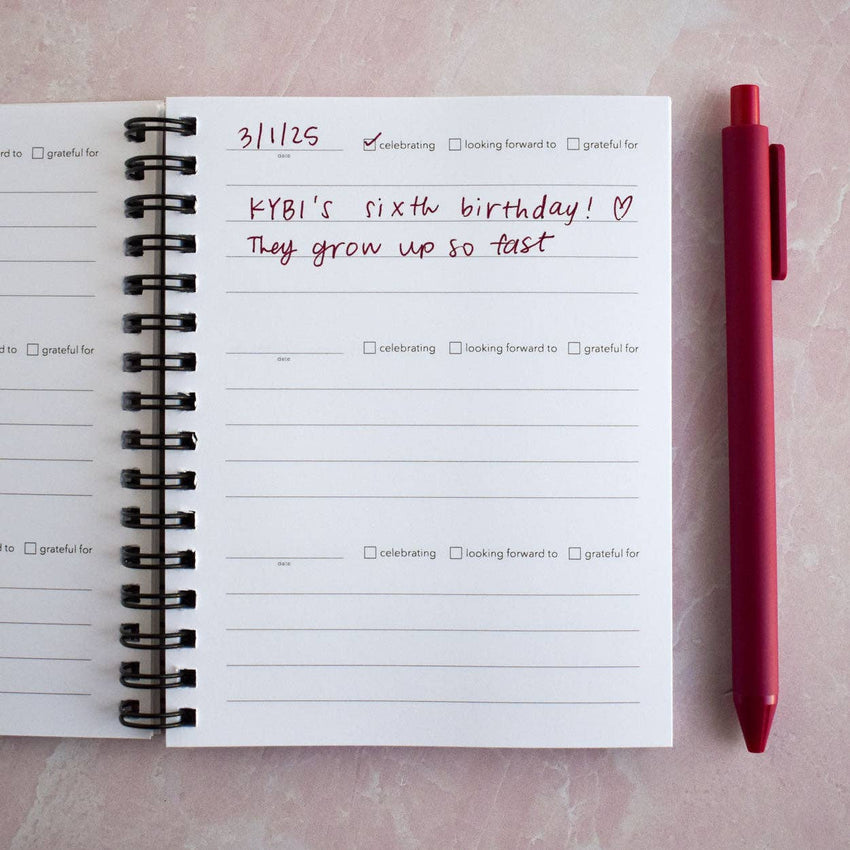 3/1/25 celebrating looking forward to grateful for
date
KYBI's sixth birthday! ♡
They grow up so fast
celebrating looking forward to grateful for
date
celebrating looking forward to grateful for
date
to grateful for
to grateful for
to grateful for